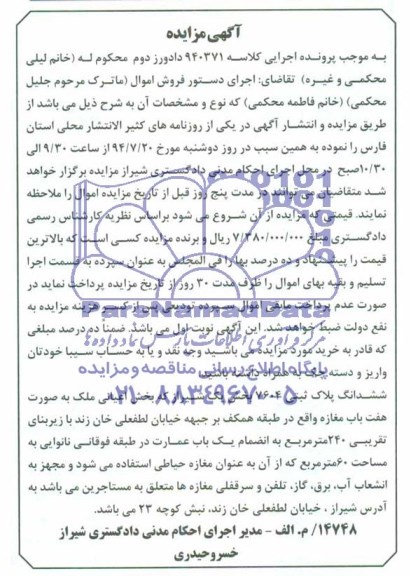 آگهی مزایده
به موجب پرونده اجرایی کلاسه ۹۴۰۳۷۱ دادورز دوم محکوم له (خانم لیلی
محکمی و غیره) تقاضای: اجرای دستور فروش اموال (ماترک مرحوم جلیل
محکمی) (خانم فاطمه محکمی) که نوع و مشخصات آن به شرح ذیل می باشد از
طریق مزایده و انتشار آگهی در یکی از روزنامه های کثیر الانتشار محلی استان
فارس را نموده به همین سبب در روز دوشنبه مورخ ۹۴/۷/۲۰ از ساعت ۹/۳۰ الی
۱۰/۳۰صبح در محل اجرای احکام مدنی دادگستری شیراز مزایده برگزار خواهد
شد متقاضیان می توانند در مدت پنج روز قبل از تاریخ مزایده اموال را ملاحظه
نمایند. قیمتی که مزایده از آن شروع می شود براساس نظریه کارشناس رسمی
دادگستری مبلغ ۷/۳۸۰/۰۰۰/۰۰۰ ریال و برنده مزایده کسی است که بالاترین
قیمت را پیشنهاد و ده درصد بها را فی المجلس به عنوان سپرده به قسمت اجرا
تسلیم و بقیه بهای اموال را ظرف مدت ۳۰ روز از تاریخ مزایده پرداخت نماید در
صورت عدم پرداخت مابقی اموال سپرده تودیعی پس از کسر هزینه مزایده به
نفع دولت ضبط خواهد شد. این آگهی نوبت اول می باشد. ضمناً ده درصد مبلغی
که قادر به خرید مورد مزایده می باشید وجه نقد و یا به حساب سیبا خودتان
واریز و دسته چک به همراه داشته باشید.
ششدانگ پلاک ثبتی بخش یک شیراز که بخش اعیانی ملک به صورت
هفت باب مغازه واقع در طبقه همکف بر جبهه خیابان لطفعلی خان زند با زیربنای
تقریبی ۲۴۰مترمربع به انضمام یک باب عمارت در طبقه فوقانی نانوایی به
مساحت ۶۰مترمربع که از آن به عنوان مغازه خیاطی استفاده می شود و مجهز به
انشعاب آب، برق، گاز، تلفن و سرقفلی مغازه ها متعلق به مستاجرین می باشد به
آدرس شیراز ، خیابان لطفعلی خان زند، نبش کوچه ۲۳ می باشد.
۱۴۷۴۸/ م. الف - مدیر اجرای احکام مدنی دادگستری شیراز
خسرو حیدری
ParsNamadData
مرکز فرآوری اطلاعات پارس نماد داده ها
پایگاه اطلاع رسانی مناقصه و مزایده
۰۲۱-۸۸۳۴۹۶۷۰-۵